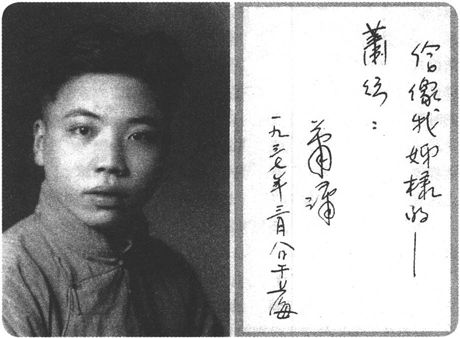 给像我姊樣的—
蕭红：
一九三七年三月八日于上海